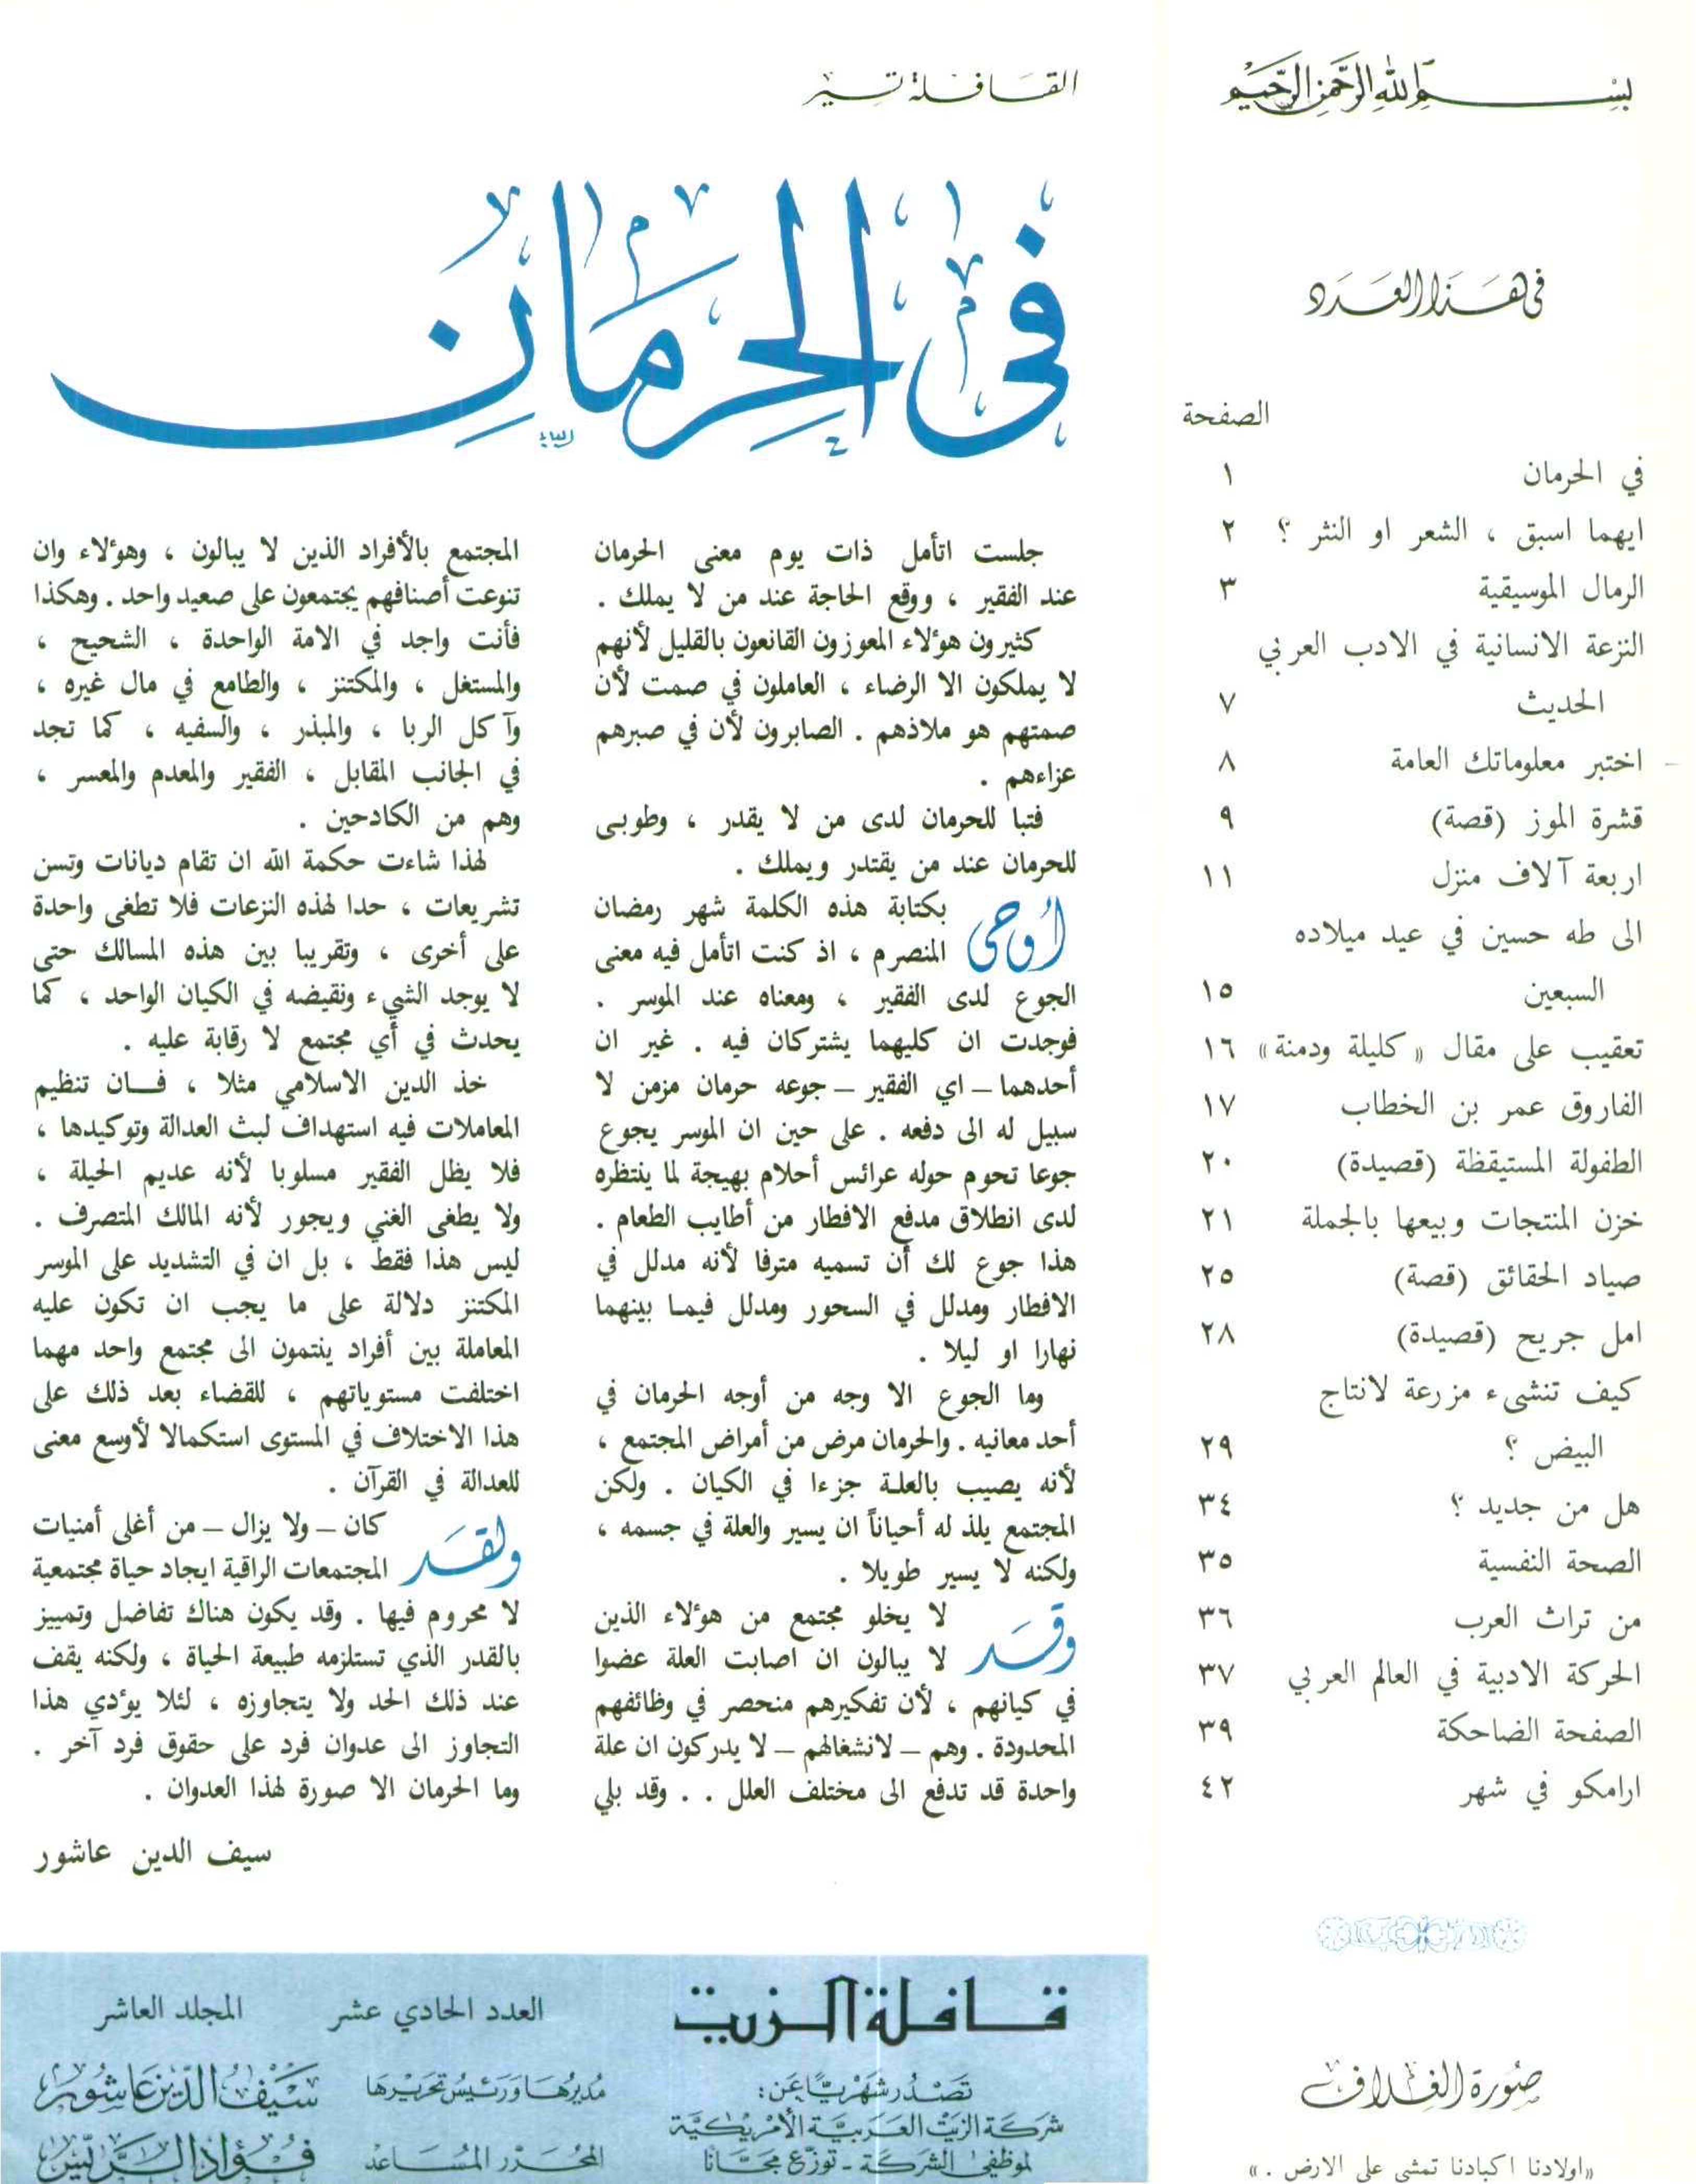 بسم الله الرحمن الرحيم
في هذا العدد
الصفحة
في الحرمان ١
ايهما اسبق ، الشعر او النثر ؟ ٢
الرمال الموسيقية ٣
النزعة الانسانية في الادب العربي
الحديث ٧
اختبر معلوماتك العامة ٨
قشرة الموز (قصة) ٩
اربعة آلاف منزل ١١
الى طه حسين في عيد ميلاده
السبعين ١٥
تعقيب على مقال «كليلة ودمنة» ١٦
الفاروق عمر بن الخطاب ١٧
الطفولة المستيقظة (قصيدة) ٢٠
خزن المنتجات وبيعها بالجملة ٢١
صياد الحقائق (قصة) ٢٥
امل جريح (قصيدة) ٢٨
كيف تنشىء مزرعة لانتاج
البيض ؟ ٢٩
هل من جديد ؟ ٣٤
الصحة النفسية ٣٥
من تراث العرب ٣٦
الحركة الادبية في العالم العربي ٣٧
الصفحة الضاحكة ٣٩
ارامكو في شهر ٤٢
صورة الغلاف
«اولادنا اكبادنا تمشي على الارض .»
القافلة تسير
في الحرمان
جلست اتأمل ذات يوم معنى الحرمان
عند الفقير ، ووقع الحاجة عند من لا يملك .
كثيرون هؤلاء المعوزون القانعون بالقليل لأنهم
لا يملكون الا الرضاء ، العاملون في صمت لأن
صمتهم هو ملاذهم . الصابرون لأن في صبرهم
عزاءهم .
فتبا للحرمان لدى من لا يقدر ، وطوبى
للحرمان عند من يقتدر ويملك .
أوحى بكتابة هذه الكلمة شهر رمضان
المنصرم ، اذ كنت اتأمل فيه معنى
الجوع لدى الفقير ، ومعناه عند الموسر .
فوجدت ان كليهما يشتركان فيه . غير ان
أحدهما – اي الفقير – جوعه حرمان مزمن لا
سبيل له الى دفعه . على حين ان الموسر يجوع
جوعا تحوم حوله عرائس أحلام بهيجة لما ينتظره
لدى انطلاق مدفع الافطار من أطايب الطعام .
هذا جوع لك أن تسميه مترفا لأنه مدلل في
الافطار ومدلل في السحور ومدلل فيما بينهما
نهارا او ليلا .
وما الجوع الا وجه من أوجه الحرمان في
أحد معانيه . والحرمان مرض من أمراض المجتمع ،
لأنه يصيب بالعلة جزءا في الكيان . ولكن
المجتمع يلذ له أحياناً ان يسير والعلة في جسمه ،
ولكنه لا يسير طويلا .
وقد لا يخلو مجتمع من هؤلاء الذين
لا يبالون ان اصابت العلة عضوا
في كيانهم ، لأن تفكيرهم منحصر في وظائفهم
المحدودة . وهم – لانشغالهم – لا يدركون ان علة
واحدة قد تدفع الى مختلف العلل . . وقد بلي
المجتمع بالأفراد الذين لا يبالون ، وهؤلاء وان
تنوعت أصنافهم يجتمعون على صعيد واحد . وهكذا
فأنت واجد في الامة الواحدة ، الشحيح ،
والمستغل ، والمكتنز ، والطامع في مال غيره ،
وآكل الربا ، والمبذر ، والسفيه ، كما تجد
في الجانب المقابل ، الفقير والمعدم والمعسر ،
وهم من الكادحين .
لهذا شاءت حكمة الله ان تقام ديانات وتسن
تشريعات ، حدا لهذه النزعات فلا تطغى واحدة
على أخرى ، وتقريبا بين هذه المسالك حتى
لا يوجد الشيء ونقيضه في الكيان الواحد ، كما
يحدث في أي مجتمع لا رقابة عليه .
خذ الدين الاسلامي مثلا ، فان تنظيم
المعاملات فيه استهداف لبث العدالة وتوكيدها ،
فلا يظل الفقير مسلوبا لأنه عديم الحيلة ،
ولا يطغى الغني ويجور لأنه المالك المتصرف .
ليس هذا فقط ، بل ان في التشديد على الموسر
المكتنز دلالة على ما يجب ان تكون عليه
المعاملة بين أفراد ينتمون الى مجتمع واحد مهما
اختلفت مستوياتهم ، للقضاء بعد ذلك على
هذا الاختلاف في المستوى استكمالا لأوسع معنى
للعدالة في القرآن .
ولقد كان – ولا يزال – من أغلى أمنيات
المجتمعات الراقية ايجاد حياة مجتمعية
لا محروم فيها . وقد يكون هناك تفاضل وتمييز
بالقدر الذي تستلزمه طبيعة الحياة ، ولكنه يقف
عند ذلك الحد ولا يتجاوزه ، لئلا يؤدي هذا
التجاوز الى عدوان فرد على حقوق فرد آخر .
وما الحرمان الا صورة لهذا العدوان .
سيف الدين عاشور
قافلة الزيت
تصدر شهريًا عن:
شركة الزيت العربية الأمريكية
لموظفي الشركة - توزع مجانا
العدد الحادي عشر المجلد العاشر
مديرها ورئيس تحريرها سيف الدين عاشور
المحرر المساعد فؤاد الريس